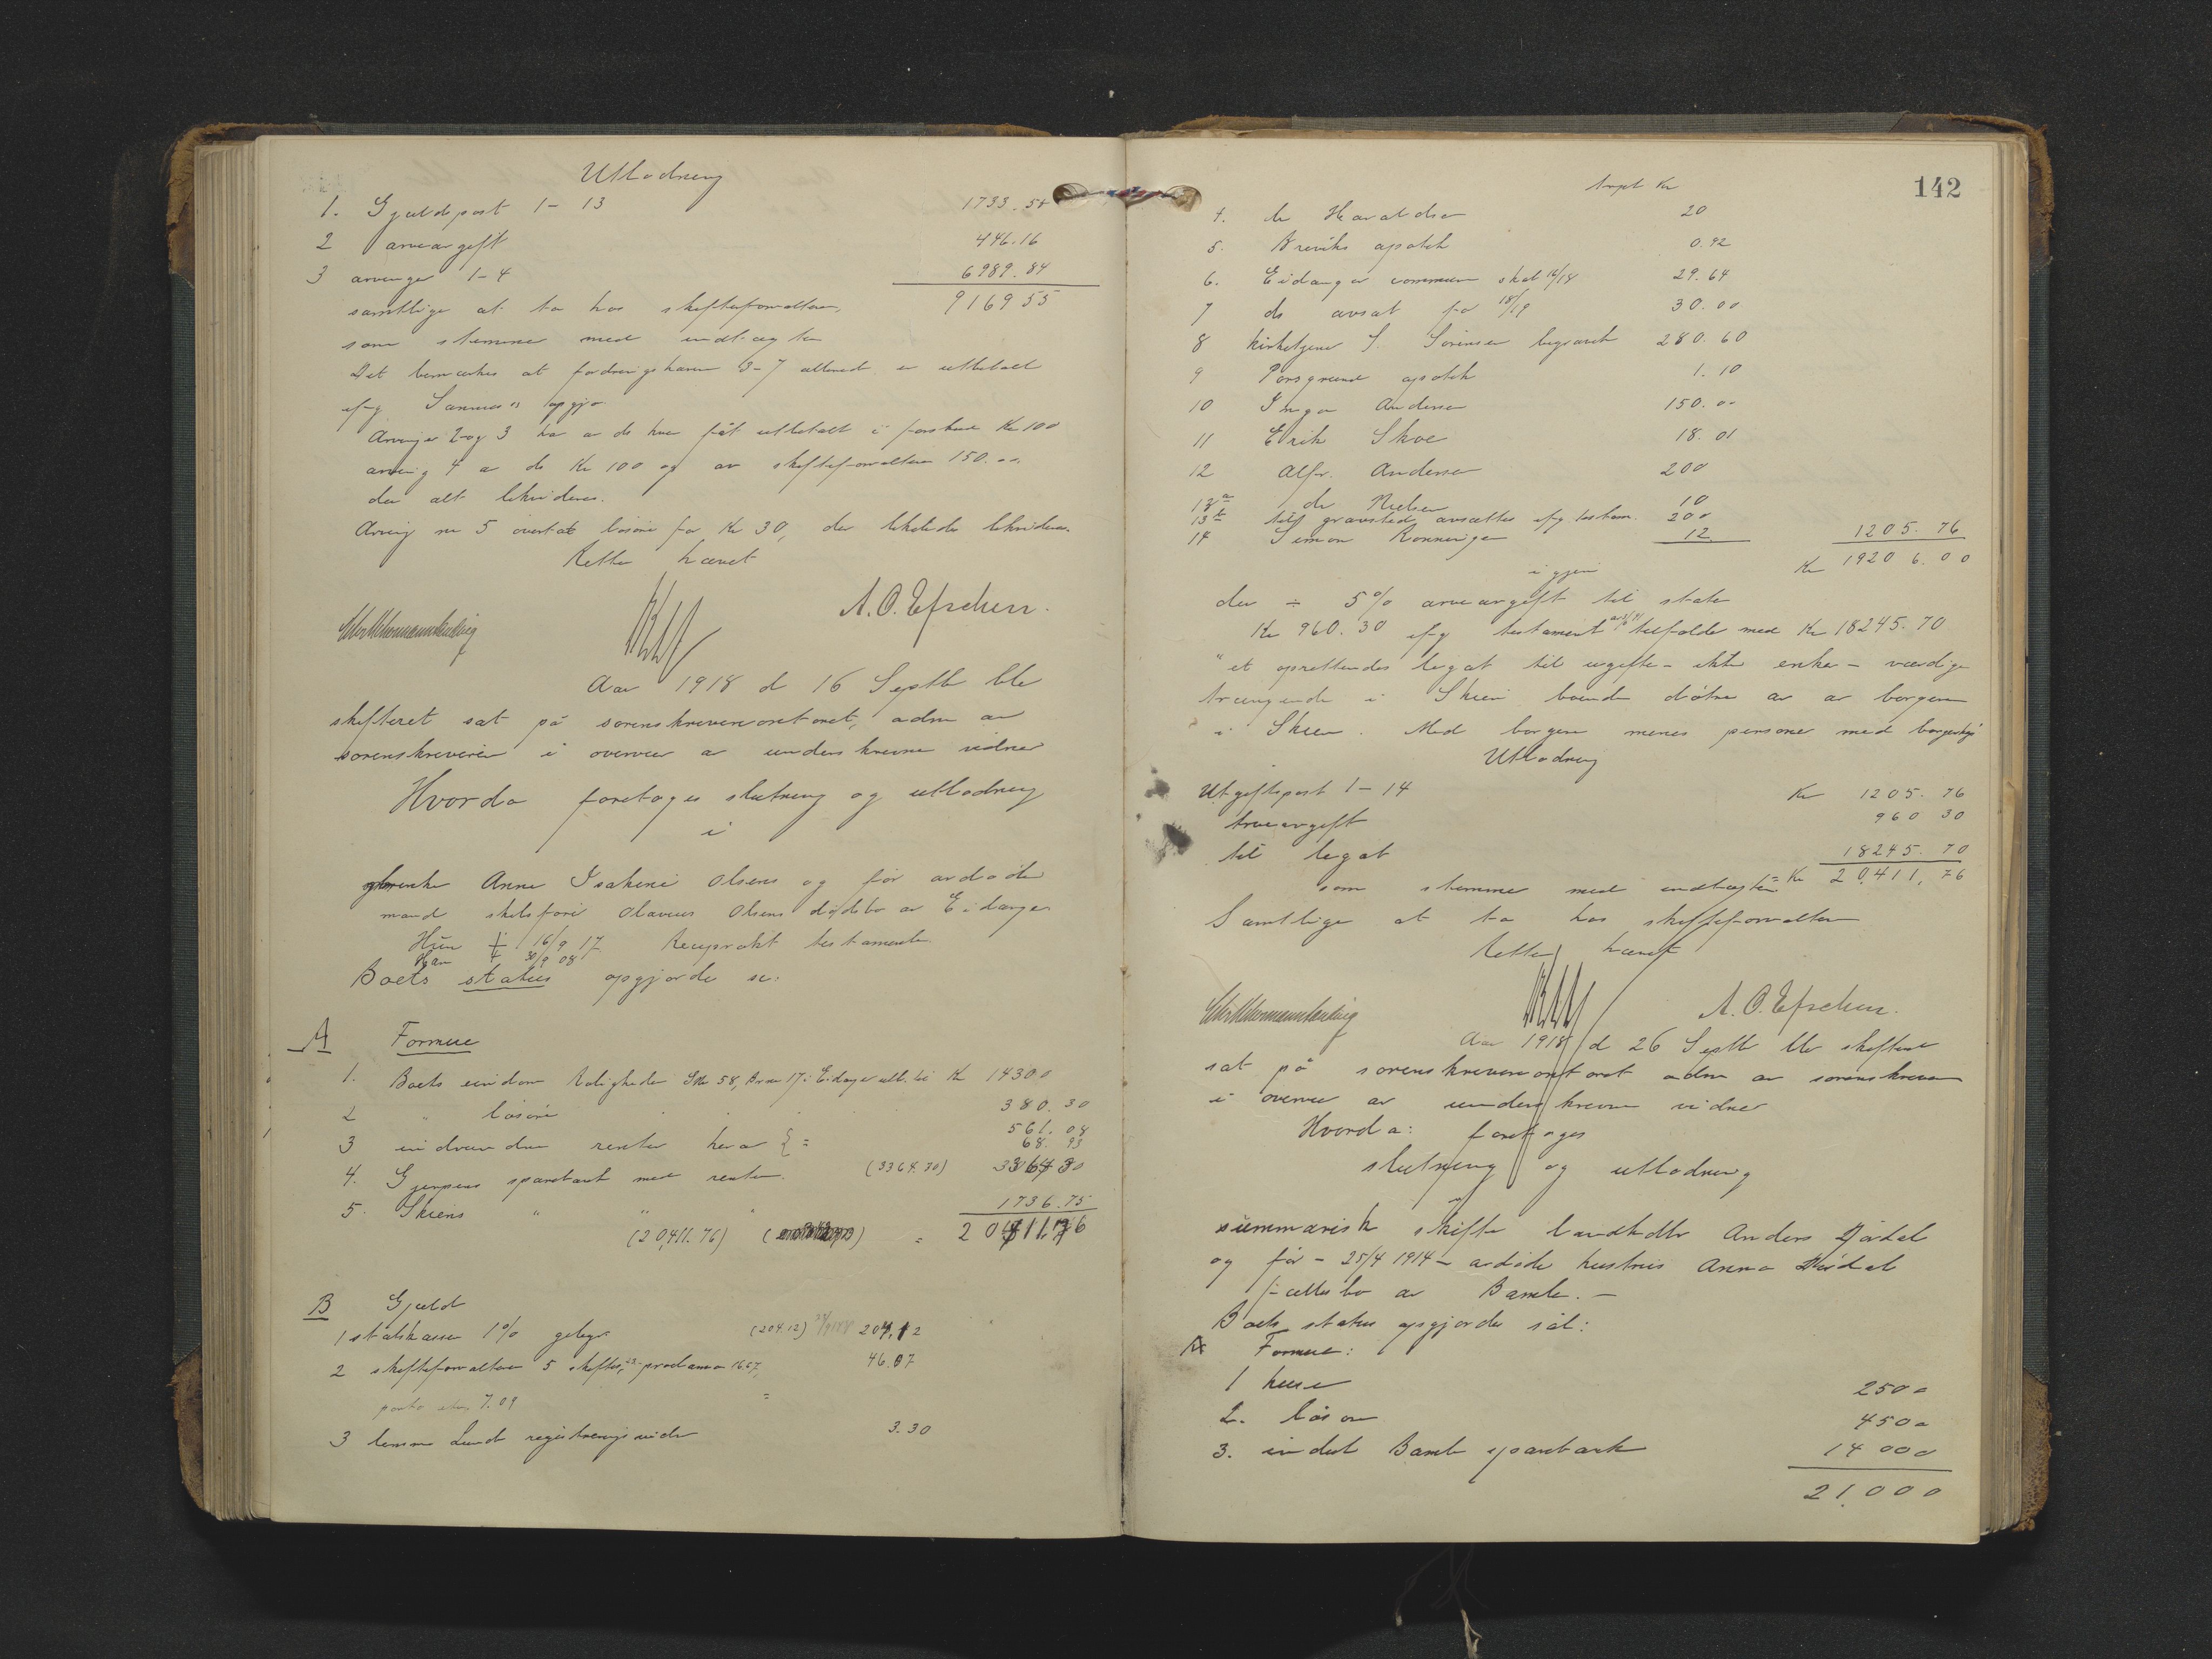 Utlodning
1. Gjældspost 1-13 1733.54
2 arveavgift 446.16
3 arvinger 1-4 6989.84
samtlige at ta hos skifteforvalteren, 9169 55
som stemmer med indtægten
Det bemærkes at fordringshaverne 3-7 allerede er utbetalt
ifg opgjør
Arvinger 2 og 3 har av do hver fåt utbetalt i forskud Kr 100
arving 4 av do Kr 100 og av skifteforvalteren 150.00
der alt likvideres.
Arving nr 5 overtat løsøre for Kr 30, der likeledes likvideres.
Retten hævet
A. O. Efschen.
Aar 1918 d 16 Septb ble
skifteret sat på sorenskriverkontoret, adm av
sorenskriveren i overvær av underskrevne vidner
Hvorda foretages slutning og utlodning
i
enke Anne Isakine Olsens og før avdøde
mand skibsfører Olaves Olsens dødsbo av Eidanger
Hun ‡ 16/9 17. Reciprokt testamente.
Han ‡ 30/9 08
Boets status opgjordes sc:
A Formue
1. Boets eiendom Roligheden Gno 58, Bno 17 i Eidanger utb. til Kr 14300
2 " løsøre 380.30
3 inddrevne renter herav { = 561.08
68.93
4. Gjerpens sparebank med renter. (3364.30) 3364 30
5. Skiens " " " 1736.75
(20,411.76) = 20411.76
B Gjæld
1 statskassen 1% gebyr (204.12) 204.12
2 skifteforvalteren 5 skiftes, proclama 16.67, 46.07
porto etc 7.09 =
3 lensm Lund registreringsvidn 3.30
142
Trspt Kr
4. dr Haraldsen 20
5. Breviks apotek 0.92
6. Eidanger commune skat 17/18 29.64
7 do avsat for 18/19 30.00
8 kirketjener S. Sørensen begravels 280.60
9 Porsgrund apotek 1.10
10 Inga Andersen 150.00
11 Erik Skoe 18.01
12 Alfr. Andersen 200
13a dr Nielsen 10
13b til gravsted avsættes ifg testam. 200
14 Simon Rønningen 12. 1205.76
igjen Kr 19206.00
der ÷ 5% arveavgift til staten
Kr 960.30 ifg testament tilfalder med Kr 18245.70
"et oprettendes legat til ugifte – ikke enker – værdige
trængende i Skien boende døtre av av borgere
i Skien. Med borgere menes personer med borgerskap
Utlodning
Utgiftspost 1-14 Kr 1205.76
Arveavgift 960 30
til legat 18245.70
som stemmer med indtægten = Kr 20,411,76
Samtlige at ta hos skifteforvalteren
Retten hævet
A. O. Efschen.
Aar 1918 d 26 Septb ble skifteret
sat på sorenskriverkontoret adm av sorenskriveren
i overvær av underskrevne vidner
Hvorda: foretages
slutning og utlodning
i
summarisk skifte landhdlr Anders Dørdal
og før – 25/4 1914 – avdøde hustrus Anna Dørdal
fællesbo av Bamle. –
Boets status opgjordes såt:
A Formue:
1 huse 2500
2. løsøre 4500
3. indest Bamle sparebank 14 000
21,000